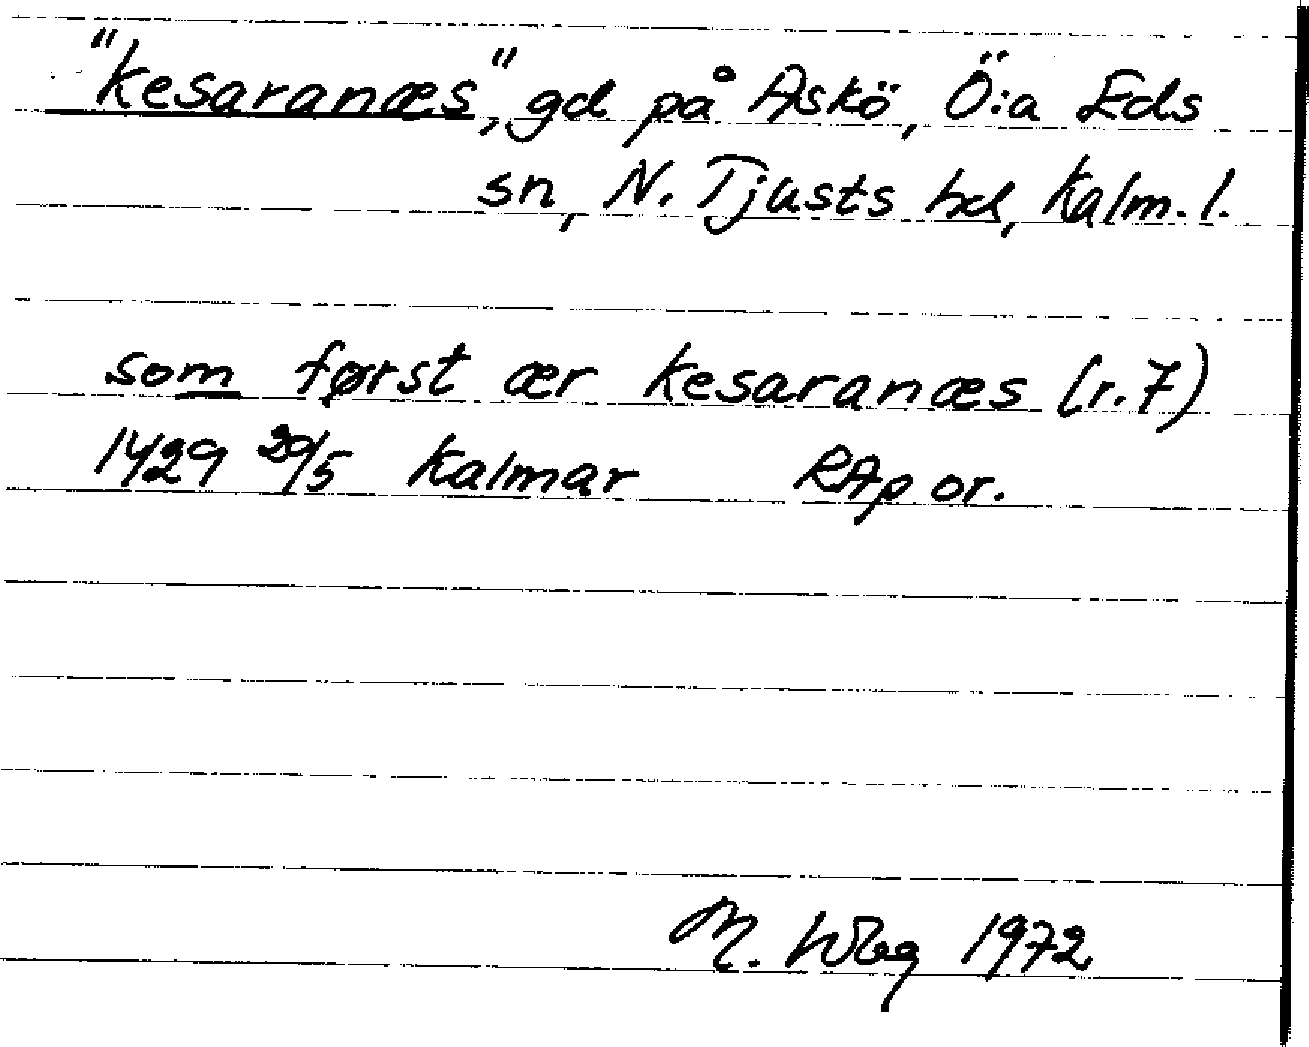 "Kesaranæs", gd på Askö, Ö:a Eds
sn, N. Tjusts hd, Kalm. l.
som først ær kesaranæs (r.7)
1429 20/5 Kalmar RAp or.
M. Wbg 1972